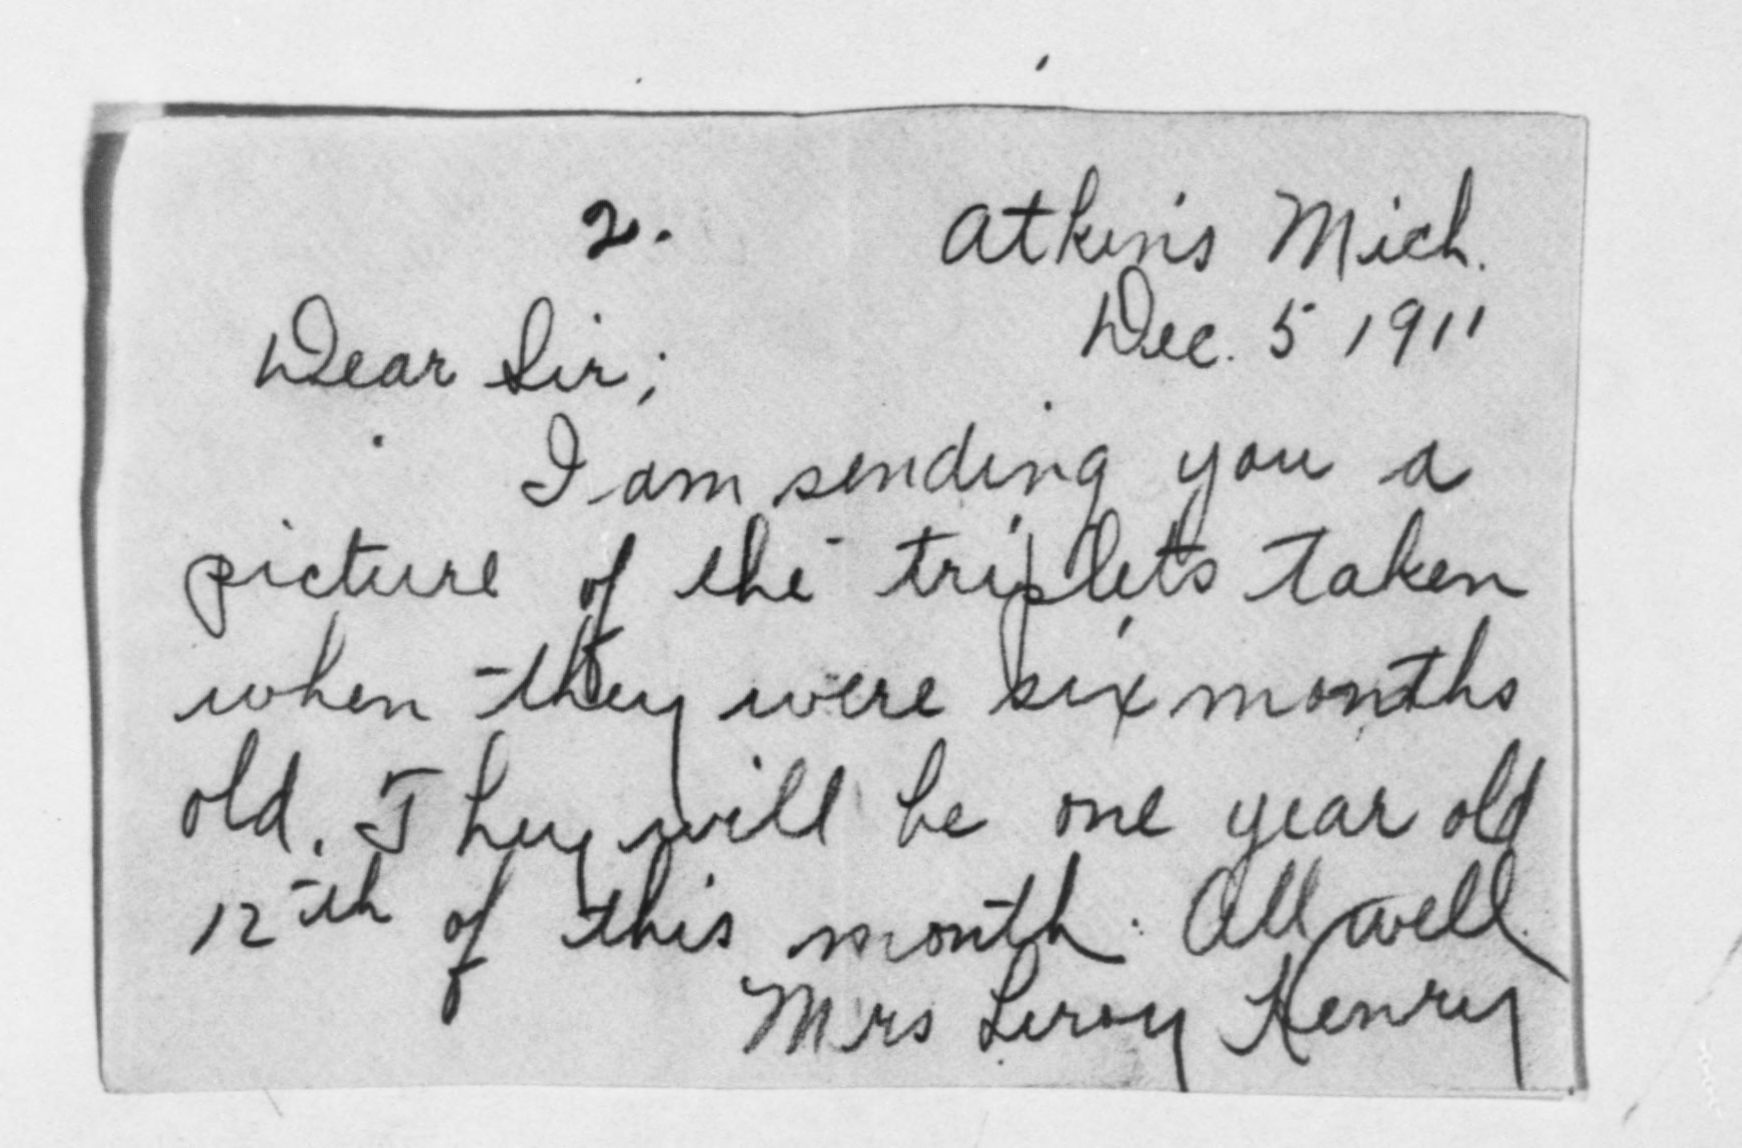 2.
Atkins Mich.
Dec. 5 1911
Dear Sir;
I am sending you a
picture of the triplets taken
when they were six months
old. They will be one year old
12th of this month. All well.
Mrs Leroy Henry